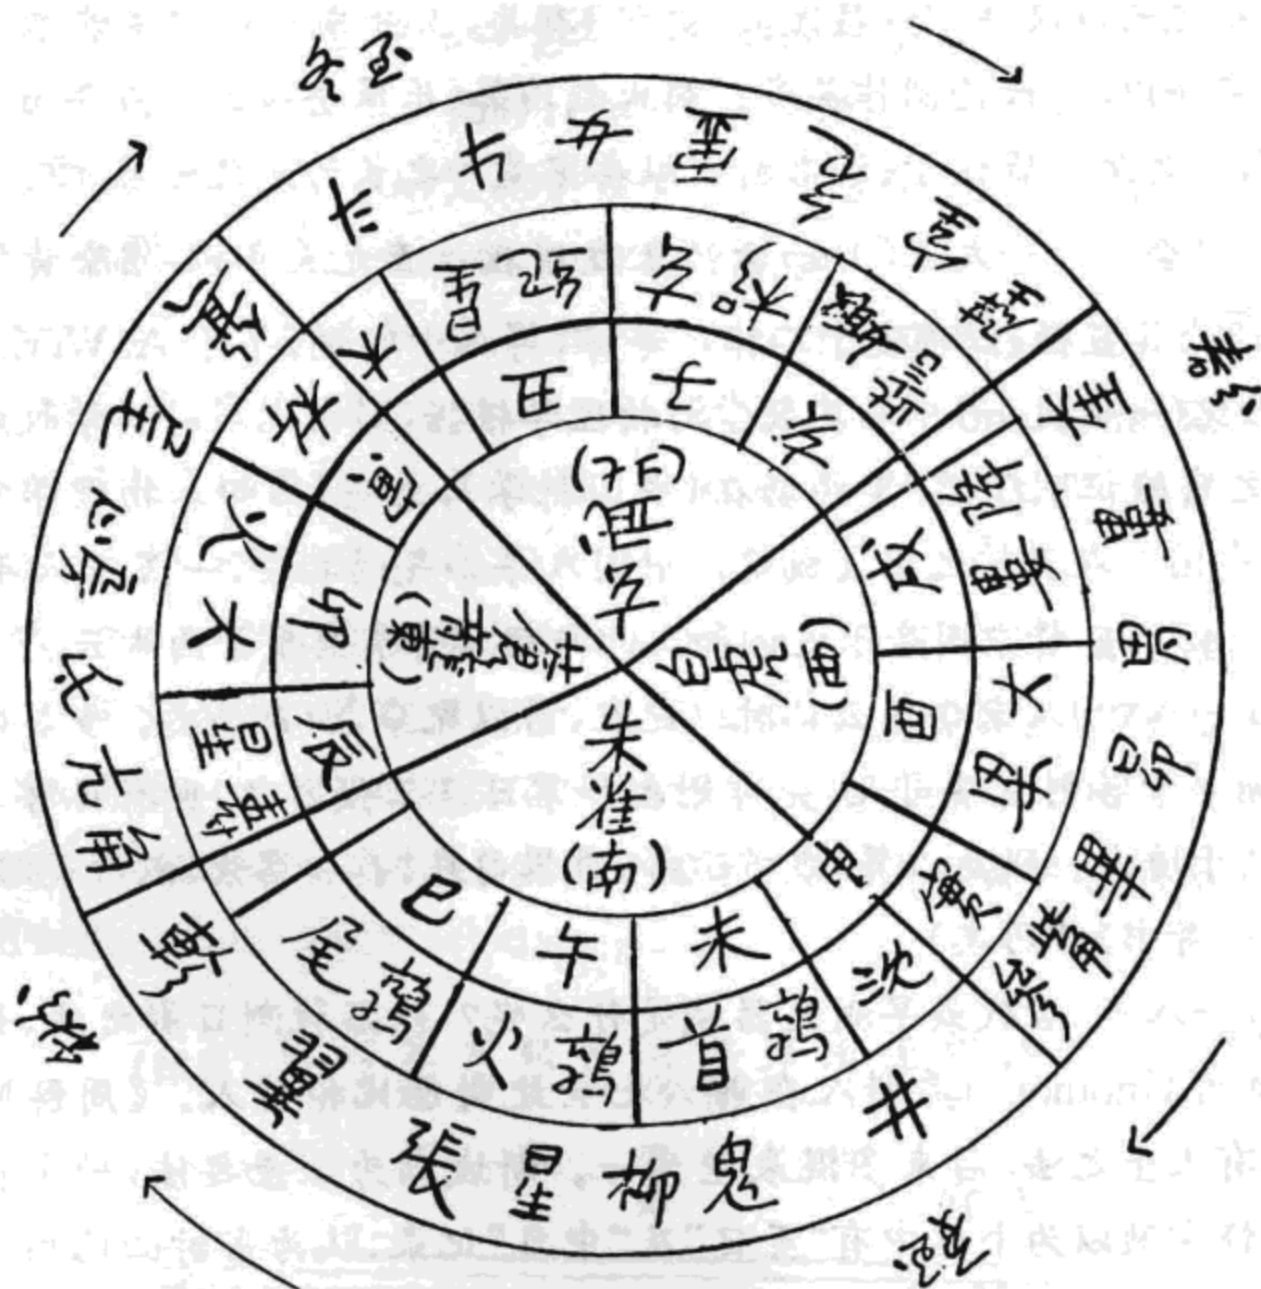 冬至
春分
夏至
秋分
斗 牛 女 虛 危 室 壁
奎 婁 胃 昴 畢 觜 參
井 鬼 柳 星 張 翼 軫
角 亢 氐 房 心 尾 箕
星紀
玄枵
娵訾
降婁
大梁
實沈
鶉首
鶉火
鶉尾
壽星
大火
析木
丑 子 亥 戌 酉 申 未 午 巳 辰 卯 寅
玄武
(北)
白虎
(西)
朱雀
(南)
蒼龍
(東)